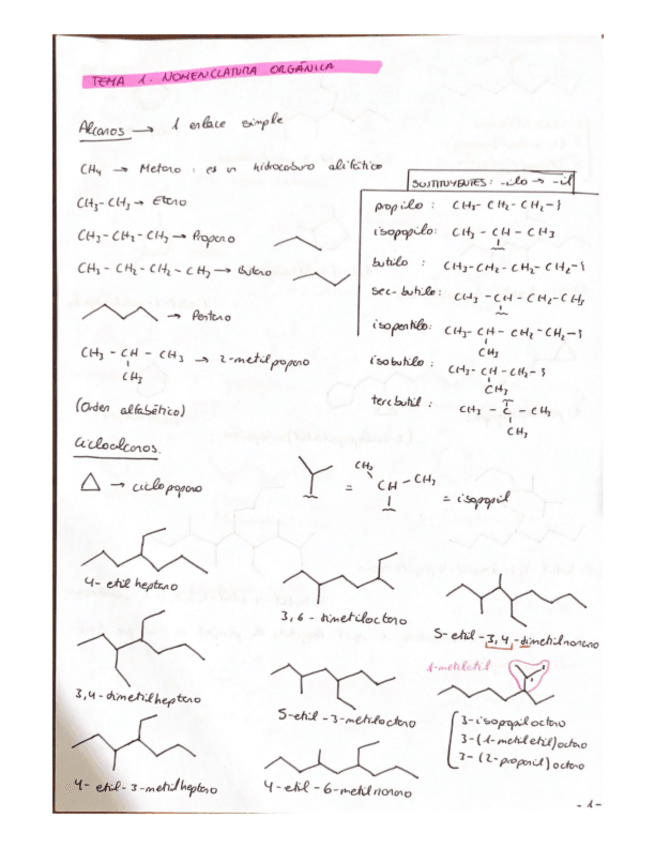 TEMA 1. NOMENCLATURA ORGÁNICA
Alcanos → 1 enlace simple
CH4 → Metano : es un hidrocarburo alifático
CH3-CH3 → Etano
CH3-CH2-CH3 → Propano
CH3-CH2-CH2-CH3 → Butano
→ Pentano
CH3-CH-CH3 → 2-metilpropano
CH3
(Orden alfabético)
SUSTITUYENTES: -ilo → -il
propilo: CH3-CH2-CH2-}
isopropilo: CH3-CH-CH3
butilo: CH3-CH2-CH2-CH2-}
sec-butilo: CH3-CH-CH2-CH3
isopentilo: CH3-CH-CH2-CH2-}
CH3
isobutilo: CH3-CH-CH2-}
CH3
tercbutil: CH3-C-CH3
CH3
Cicloalcanos.
→ ciclopropano
= CH3 CH-CH3 = isopropil
4-etilheptano
3,6-dimetiloctano
5-etil-3,4-dimetilnonano
3,4-dimetilheptano
5-etil-3-metiloctano
1-metiletil
3-isopropiloctano
3-(1-metiletil)octano
3-(2-propanil)octano
4-etil-3-metilheptano
4-etil-6-metilnonano
-1-